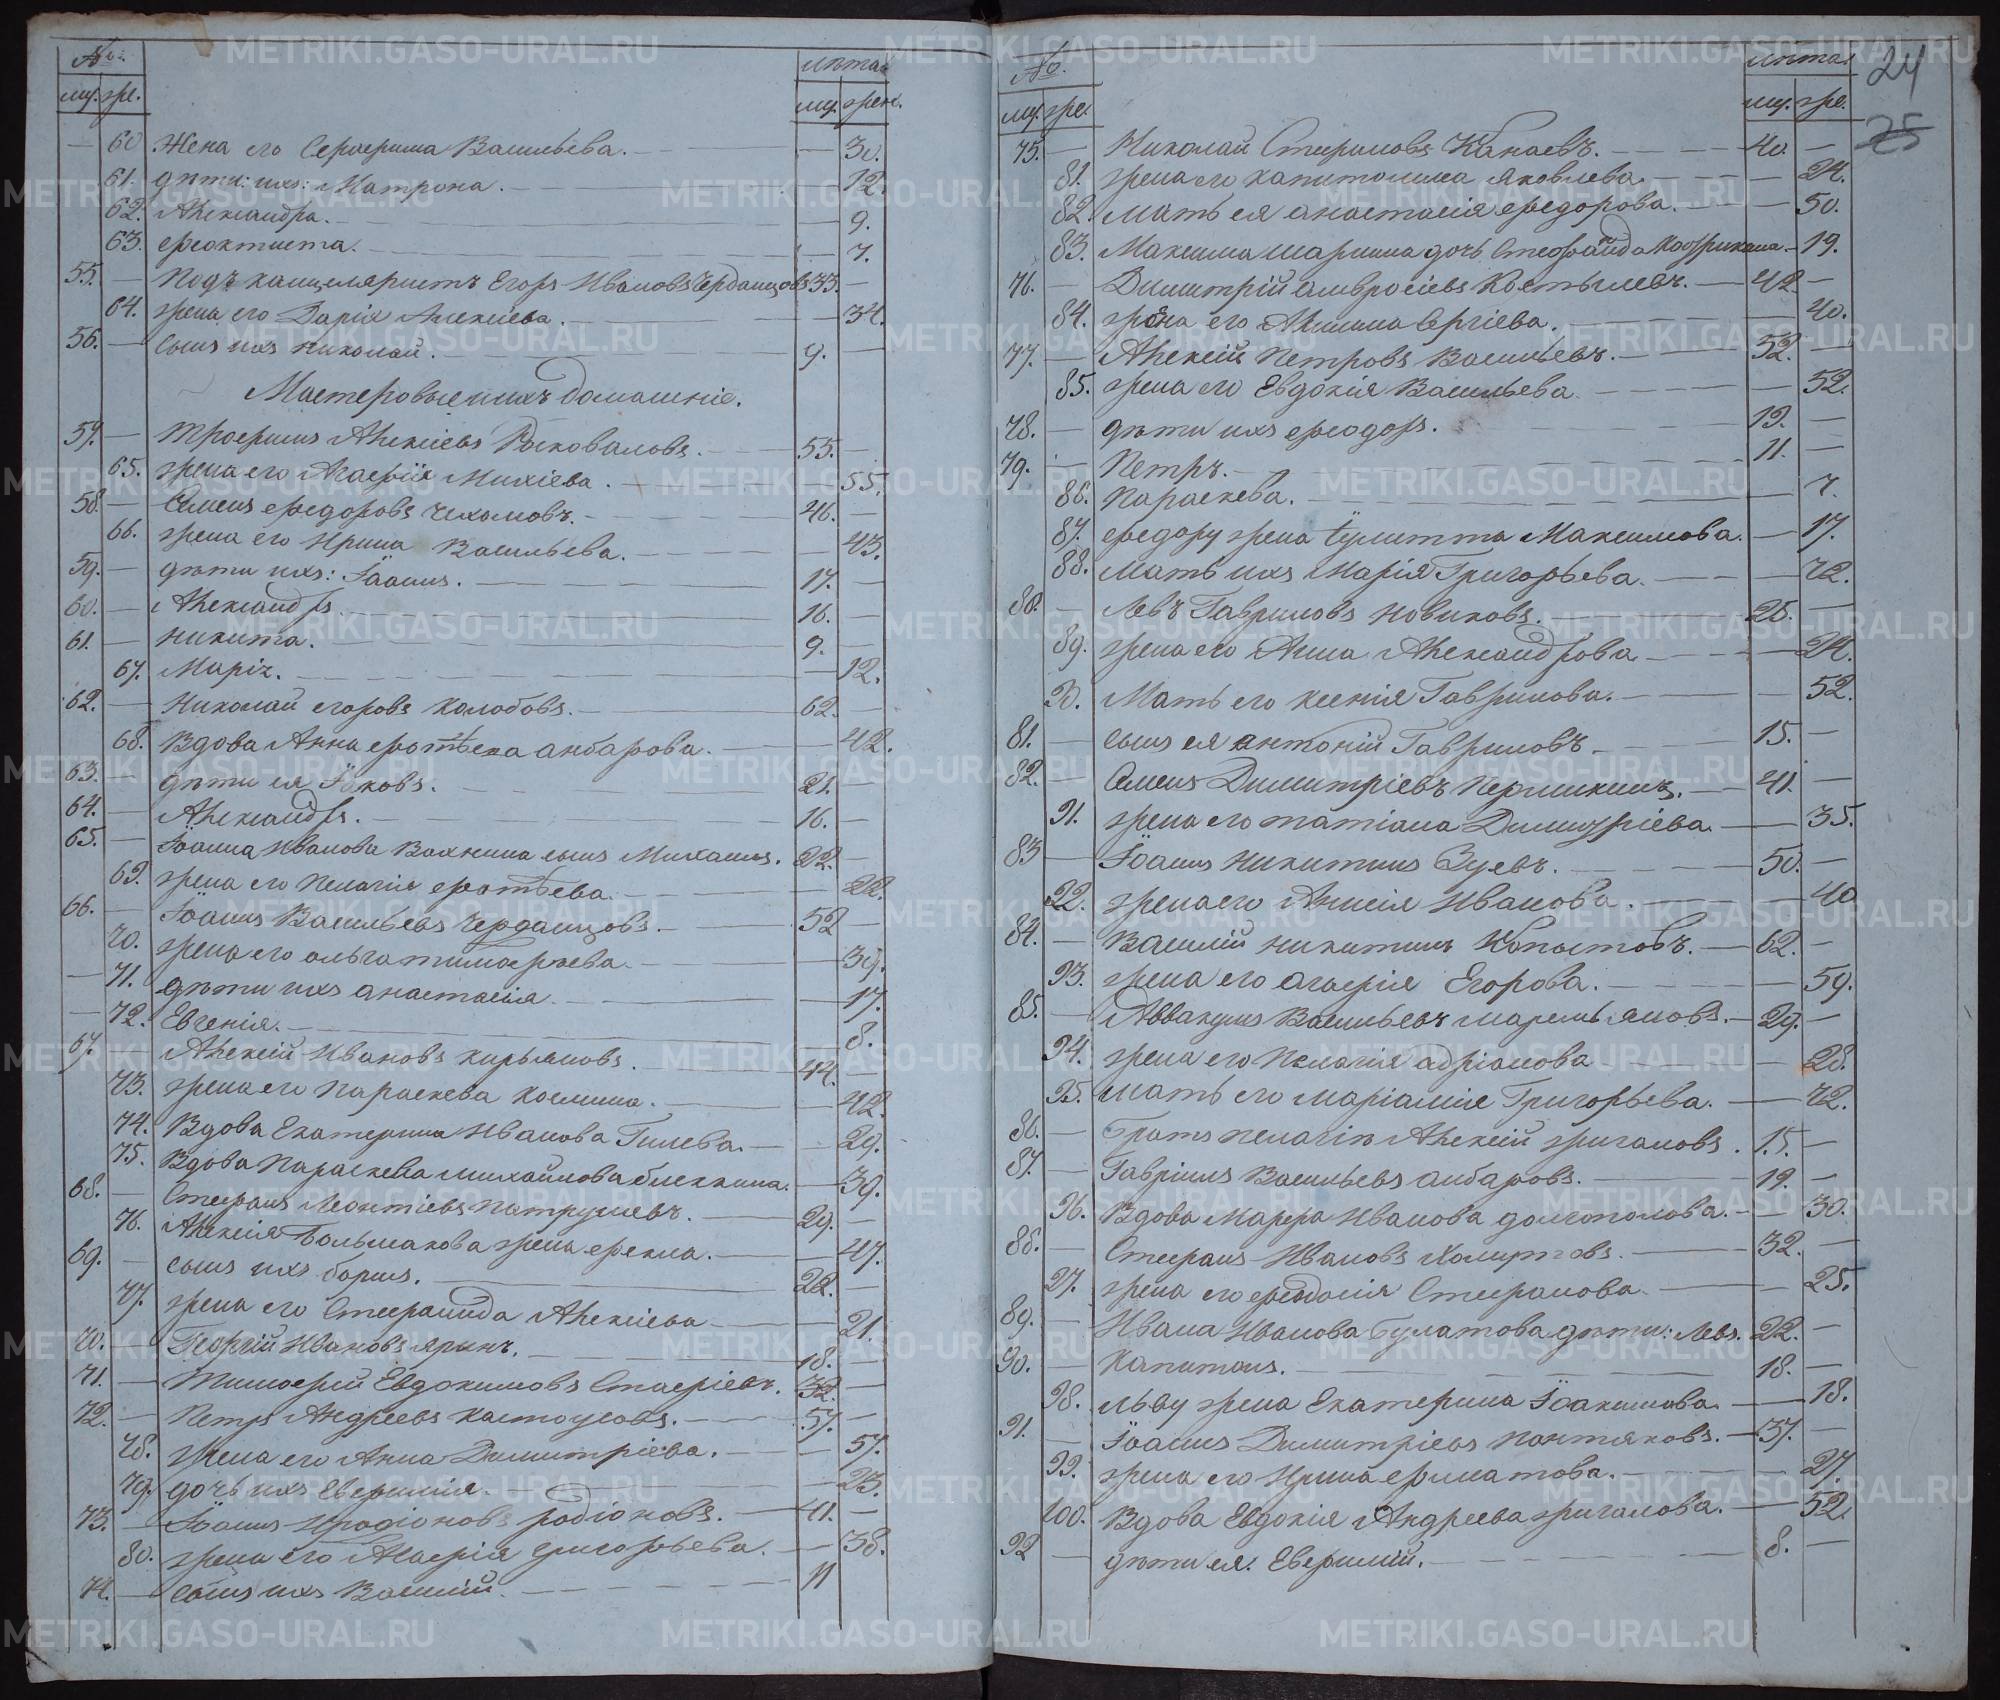 № лѣта.
му. же. му. жен.
— 60 Жена его Серафима Васильева. — 30.
61. дѣти: ихъ: Матрона. — 12.
62. Александра. — 9.
63. Феоктиста. — 7.
55. — Подъ канцеляристъ Егоръ Ивановъ Черданцовъ 33. —
64. жена его Дарія Алексіева. — 34.
56. — сынъ ихъ Николай. 9. —
Мастеровые и ихъ домашніе.
57. — Трофимъ Алексіевъ Рыковаловъ. 55. —
65. жена его Агафія Михіева. — 55.
58. — Симеонъ Федоровъ Чехомовъ. 46. —
66. жена его Ирина Васильева. — 43.
59. — дѣти ихъ: Іоаннъ. 17. —
60. — Александръ. 16. —
61. — Никита. 9. —
67. Марія. — 12.
62. — Николай Егоровъ Колобовъ. 62. —
68. Вдова Анна Фотѣева Анбарова. — 42.
63. — дѣти ея Іаковъ. 21. —
64. — Александръ. 16. —
65. — Іоанна Иванова Вахнина сынъ Михаилъ. 22. —
69. жена его Пелагія Фотѣева. — 22.
66. — Іоаннъ Васильевъ Черданцовъ. 52 —
70. жена его Ольга Тимофѣева. — 39.
— 71. дѣти ихъ Анастасія. — 17.
— 72. Евгенія. — 8.
67. — Алексій Ивановъ Кирьяновъ. 44. —
73. жена его Параскева Космина. — 42.
74. Вдова Екатерина Иванова Гилева. — 29.
75. Вдова Параскева Михайлова Блекнина. — 39.
68. — Стефанъ Леонтіевъ Патрушевъ. 29. —
76. Алексія Большакова жена Фекла. — 47.
69. — сынъ ихъ Борисъ. 22. —
77. жена его Стефанида Алексіева — 21.
70. — Георгій Ивановъ Яринъ. 18. —
71. — Тимофей Евдокимовъ Стафіевъ. 32. —
72. — Петръ Андреевъ Кастоусовъ. 57. —
78. жена его Анна Димитріева. — 57.
79. дочь ихъ Евфимія. — 23.
73. — Іоаннъ Иродіоновъ Родіоновъ. 41. —
80. жена его Агафія Григорьева. — 38.
74. — сынъ ихъ Василій. 11
№. лѣта.
му. же. му. же.
24
25
75. — Николай Стефановъ Канаевъ. 40. —
81. жена его Капитолина Яковлева. — 24.
82. Мать ея Анастасія Федорова. — 50.
83. Максима Шаршина дочь Стефанида — 19.
76. — Димитрій Амвросіевъ Костылевъ. 42 —
84. жена его Акилина Сергіева. — 40.
77. — Алексій Петровъ Васильевъ. 52. —
85. жена его Евдокія Васильева — 52.
78. — дѣти ихъ Феодоръ. 19. —
79. — Петръ. 11. —
86. Параскева. — 7.
87. Федору жена Іулитта Максимова. — 17.
88. Мать ихъ Марія Григорьева. — 72.
80. — Левъ Гавриловъ Новиковъ. 25. —
89. жена его Анна Александрова — 24.
90. Мать его Ксенія Гаврилова. — 52.
81. — сынъ ея Антоній Гавриловъ 15. —
82. — Симеонъ Димитріевъ Першикинъ. 41. —
91. жена его Татіана Димитріева — 35.
83 — Іоаннъ Никитинъ Зуевъ. 50. —
92. жена его Анисія Иванова. — 40
84. — Василій Никитинъ Копыстовъ. 62. —
93. жена его Агафія Егорова. — 59.
85. — Аввакумъ Васильевъ Маремьяновъ. 29. —
94. жена его Пелагія Адріанова — 28.
95. Мать его Маріамія Григорьева. — 72.
86. — братъ Пелагіи Алексій Жигаловъ. 15. —
87. — Гавріилъ Васильевъ Анбаровъ. 19. —
96. Вдова Марфа Иванова Долгополова. — 30.
88. — Стефанъ Ивановъ Холуптовъ. 32. —
97. жена его Феодосія Стефанова. — 25.
89. — Ивана Иванова Булатова дѣти: Левъ. 22. —
90. — Капитонъ. 18. —
98. Льву жена Екатерина Іоакимова. — 18.
91. — Іоаннъ Димитріевъ Пантяковъ. 37. —
99. жена его Ирина Филатова. — 27.
100. Вдова Евдокія Андреева Жигалова. — 52.
92 — дѣти ея. Евфимій. 8. —